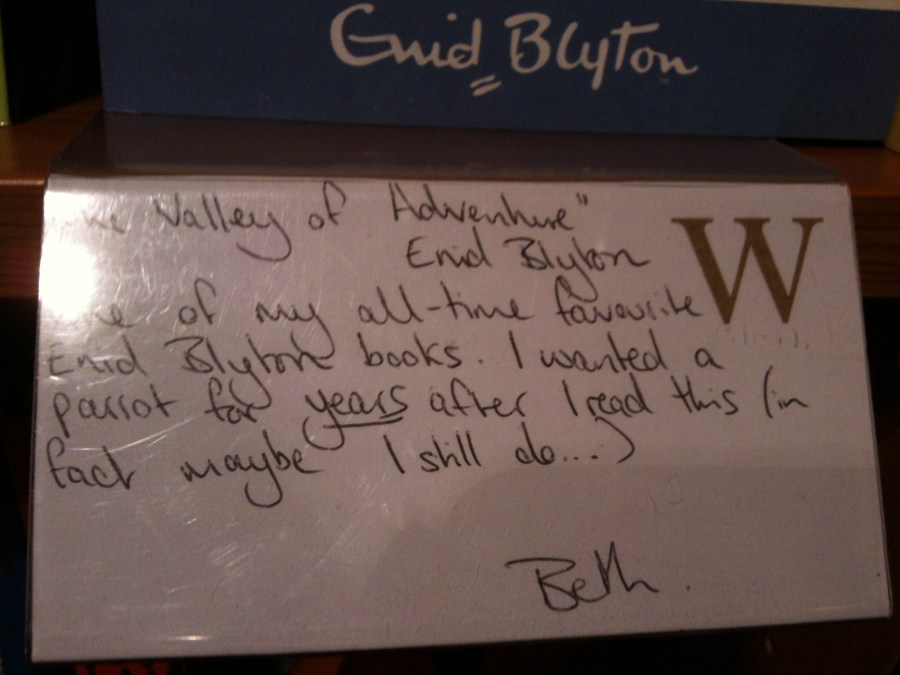 Enid Blyton
Valley of Adventure"
Enid Blyton
W
of my all-time favourite
Enid Blyton books. I wanted a
parrot for years after I read this (in
fact maybe I still do...)
Beth.